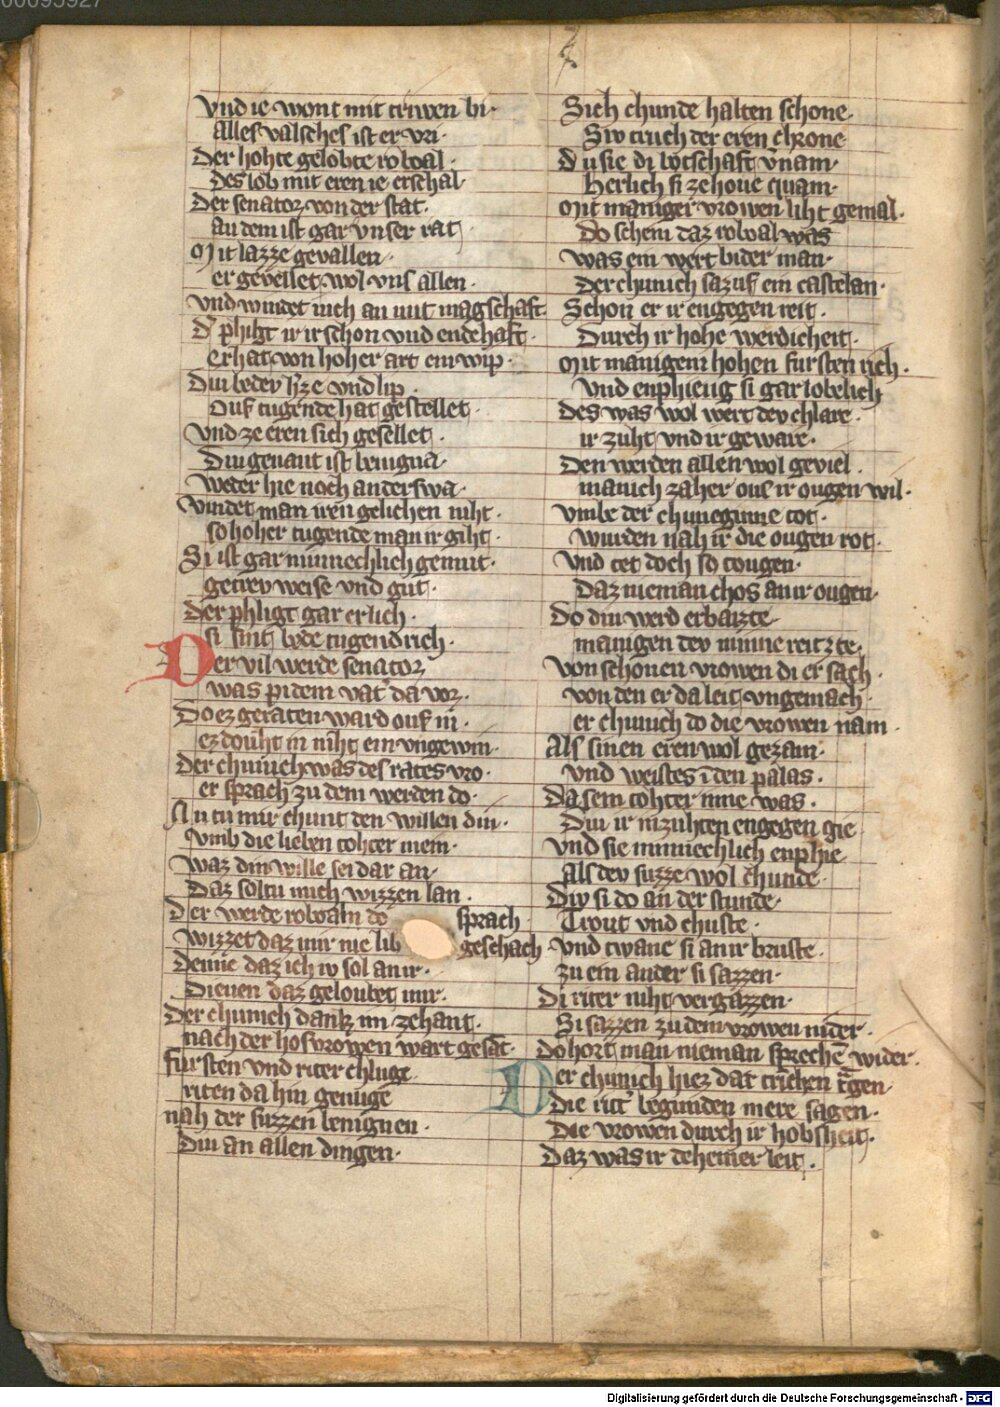 vnd ie wont mit triwen bi·
alles valsches ist er vri·
Der hohe gelobte roboal·
des lob mit eren ie erschal
Der senator von der stat·
an dem ist gar vnser rat
Mit lazze gevallen·
er gevellet wol vns allen·
vnd windet iuch an mit magschaft·
D phligt ir ir schon vnd endehaft·
er hat von hoher art ein wip·
Diu bedev vnd lip·
ouf tugende hat gestellet·
vnd ze eren sich gesellet·
Diu genant ist benigna·
weder hie noch anderswa·
vindet man iren gelichen niht·
so hoher tugende man ir giht·
Si ist gar minnechlich gemut·
getrev weise vnd gut·
Der phligt gar erlich·
si sint bede tugendrich·
Der vil werde senator
was pi dem vat' da vor·
Do ez geraten ward ouf in·
ez douht in niht ein vngewin·
Der chunich was des rates vro·
er sprach zu dem werden do·
Nu tu mir chunt den willen din·
vmb die lieben tohter mein·
waz din wille sei dar an·
Daz soltu mich wizzen lan·
Der werde roboaln do sprach
wizzet daz mir nie lib geschach
denne daz ich iv sol an ir·
Dienen daz geloubet mir·
Der chunich dankt im zehant·
nach der hofvrowen wart gesāt·
fursten vnd riter chluge
riten da hin genuge
nah der suzzen benignen·
Diu an allen dingen·
Sich chunde halten schone·
Siv truch der eren chrone
Du sie di botschaft v̄nam·
herlich si ze houe quam·
Mit maniger vrowen liht gemal·
Do schein daz roboal was
was ein wert bider man·
Der chunich saz uf ein castelan·
Schon er ir engegen reit·
Durch ir hohe werdicheit·
Mit manigem hohen fursten rich·
vnd enphieng si gar lobelich
des was wol wert dev chlare·
ir zuht vnd ir geware·
Den werden allen wol geviel·
manich zaher ous ir ougen wil·
vmbe der chuneginne tot·
wurden nah ir die ougen rot·
vnd tet doch so tougen·
Daz nieman chos an ir ougen·
Do diu werd erbaizte
manigen dev minne reitzte·
von schonen vrowen di er sach·
von den er da leit vngemach·
er chunich do die vrowen nam·
Als sinen eren wol gezam·
vnd weistes ī den palas·
Da sein tohter inne was·
Diu ir mit zuhten engegen gie
vnd sie minnechlich enphie
Als dev suzze wol chunde·
Div si do an der stunde·
Trout vnd chuste·
vnd twanc si an ir bruste·
zu ein ander si sazzen·
Di riter niht vergazzen·
Si sazzen zu dem vrowen nider·
do hort man nieman sprechē wider·
Der chunich hiez dar trichen t͛gen·
Die begunden mere sagen·
Die vrowen durch ir hobsheit·
Daz was ir deheiner leit·
Digitalisierung gefördert durch die Deutsche Forschungsgemeinschaft - DFG